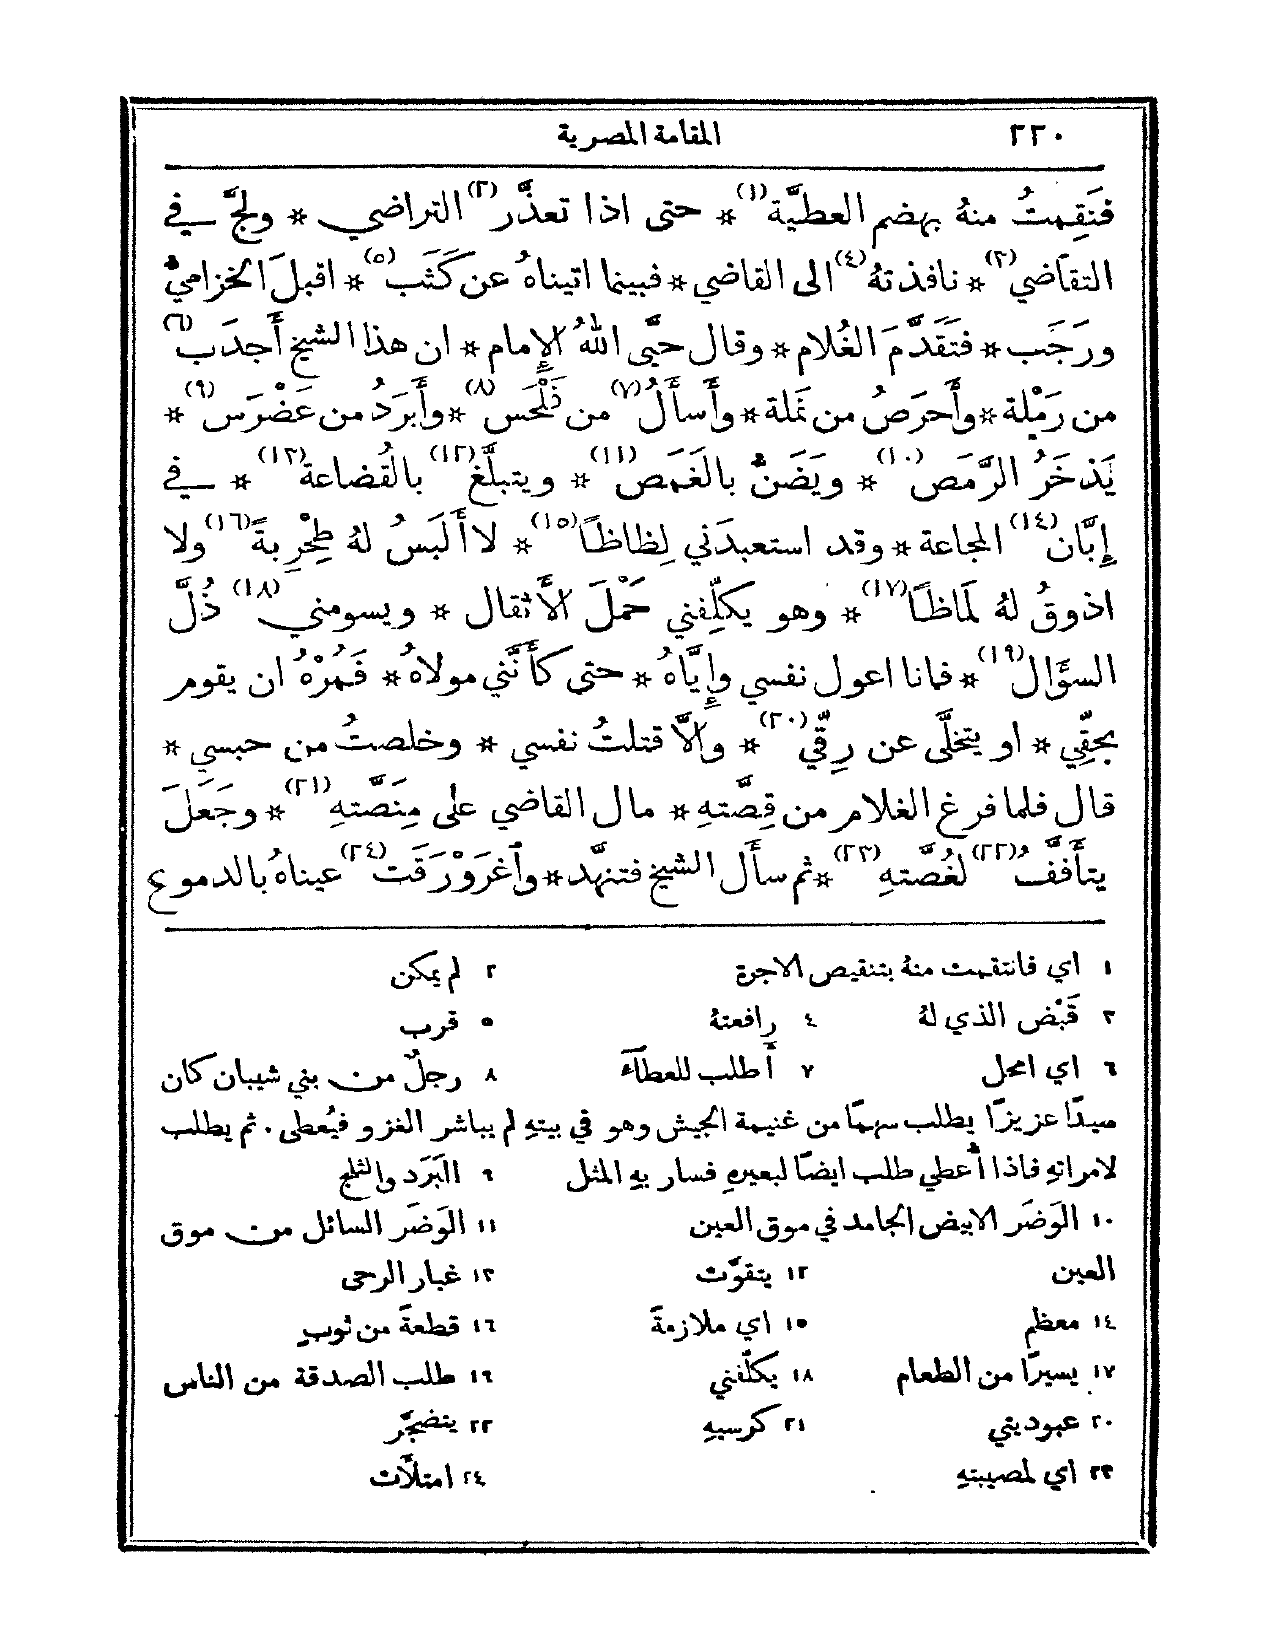 ٢٢٠ المقامة المصرية
فنَقِمتُ منهُ بهضم العطيَّة(١) * حتى اذا تعذَّر(٢) التراضي * ولجَّ في
التقاضي(٣) * نافذتهُ(٤) الى القاضي * فبينما اتيناهُ عن كَثَب(٥) * اقبلَ الخزاميُّ
ورَجَب * فتَقَدَّمَ الغُلام * وقال حيَّى اللهُ الإِمام * ان هذا الشيخ أَجدَب(٦)
من رَمْلة * وأَحرَصُ من نملة * وأَسأَلُ(٧) من فَلْحَس(٨) * وأَبرَدُ من عَضْرَس(٩) *
يَذخَرُ الرَّمَص(١٠) * ويَضَنُّ بالغَمَص(١١) * ويتبلَّغ(١٢) بالقُضاعة(١٣) * في
إِبَّان(١٤) المجاعة * وقد استعبدَني لِظاظًا(١٥) * لا أَلبَسُ لهُ طِحْرِبةً(١٦) ولا
اذوقُ لهُ لَماظًا(١٧) * وهو يكلِّفني حَمْلَ الأَثقال * ويسومني(١٨) ذُلَّ
السؤَال(١٩) * فانا اعول نفسي وإِيَّاهُ * حتى كأَنَّني مولاهُ * فَمُرْهُ ان يقوم
بحقِّي * او يتخلَّى عن رِقِّي(٢٠) * والَّا قتلتُ نفسي * وخلصتُ من حبسي *
قال فلما فرغ الغلام من قِصَّتهِ * مال القاضي على مِنَصَّتهِ(٢١) * وجَعَلَ
يتأَفَّفُ(٢٢) لغُصَّتهِ(٢٣) * ثم سأَل الشيخ فتنهَّد * وٱغرَوْرَقَت(٢٤) عيناهُ بالدموع
١ اي فانتقمت منهُ بتنقيص الاجرة ٢ لم يمكن
٣ قَبْض الذي لهُ ٤ رافعتهُ ٥ قرب
٦ اي امحل ٧ أَطلب للعطآء ٨ رجلٌ من بني شيبان كان
سيدًا عزيزًا يطلب سهمًا من غنيمة الجيش وهو في بيتهِ لم يباشر الغزو فيُعطى. ثم يطلب
لامراتهِ فاذا أُعطي طلب ايضًا لبعيرهِ فسار بهِ المثل ٩ البَرَد والثلج
١٠ الوَضَر الابيض الجامد في موق العين ١١ الوَضَر السائل من موق
العين ١٢ يتقوَّت ١٣ غبار الرحى
١٤ معظم ١٥ اي ملازمةً ١٦ قطعةً من ثوبٍ
١٧ يسيرًا من الطعام ١٨ يكلّفني ١٩ طلب الصدقة من الناس
٢٠ عبوديتي ٢١ كرسيهِ ٢٢ يتضجَّر
٢٣ اي لمصيبتهِ ٢٤ امتلَأَت